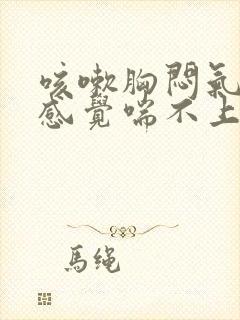 咳嗽胸悶氣
感覺喘不上
馬绳